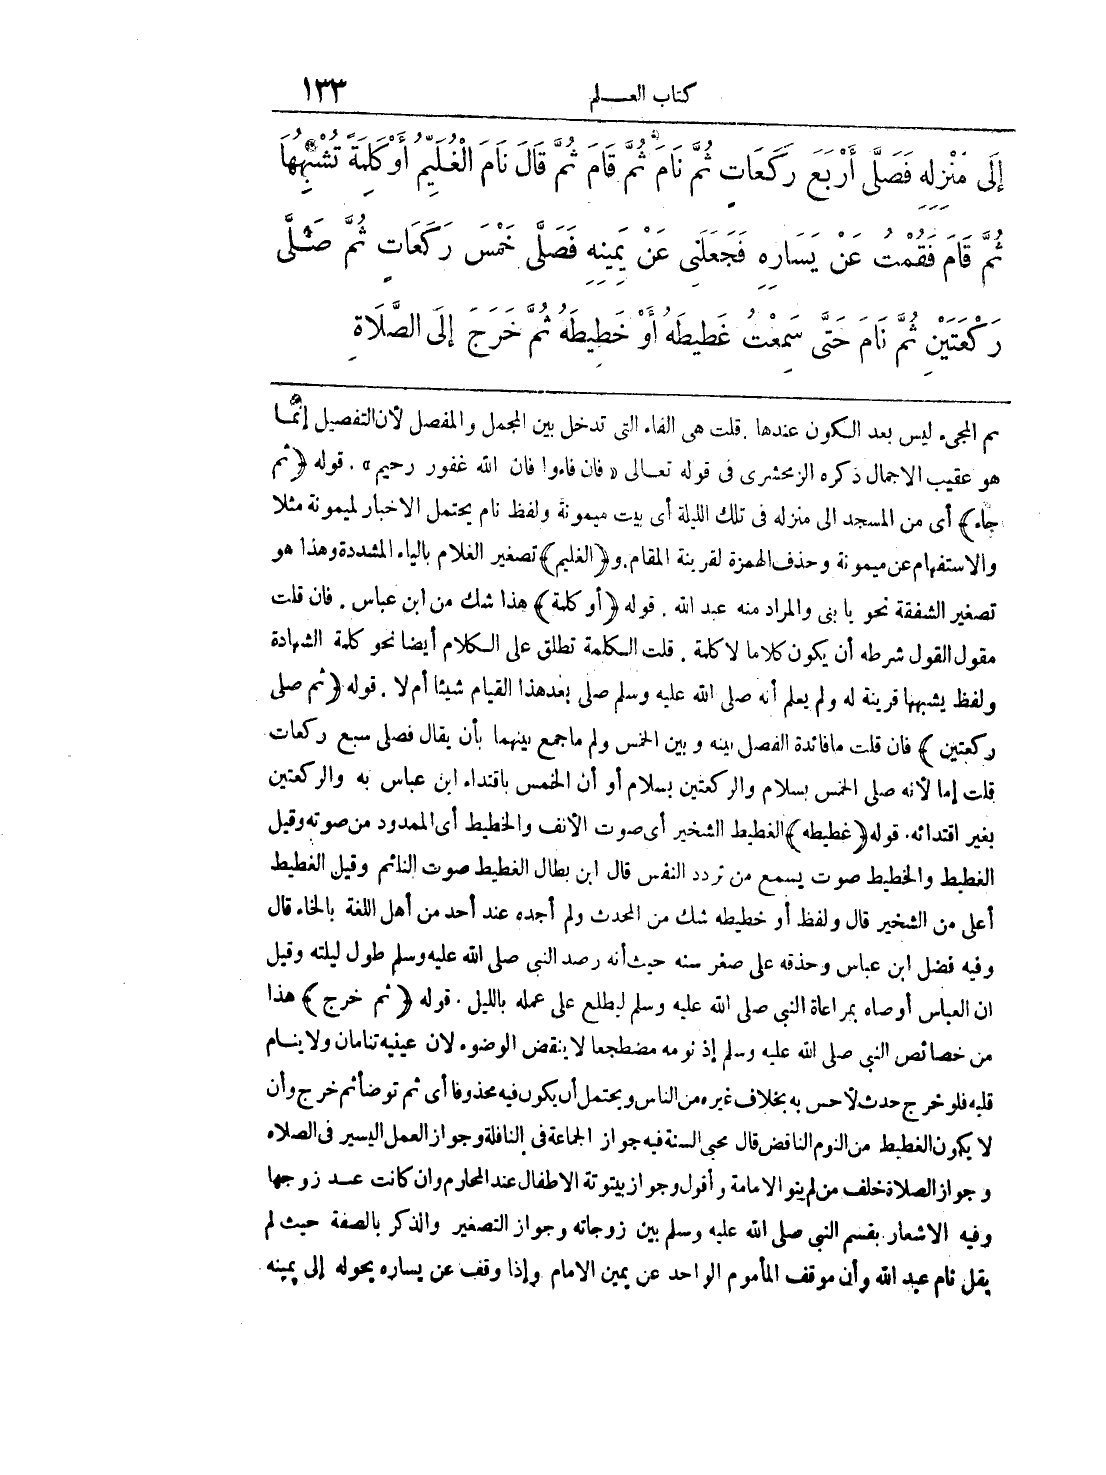 كتاب العلم ١٣٣
إِلَى مَنْزِلِهِ فَصَلَّى أَرْبَعَ رَكَعَاتٍ ثُمَّ نَامَ ثُمَّ قَامَ ثُمَّ قَالَ نَامَ الْغُلَيِّمُ أَوْ كَلِمَةً تُشْبِهُهَا
ثُمَّ قَامَ فَقُمْتُ عَنْ يَسَارِهِ فَجَعَلَنِي عَنْ يَمِينِهِ فَصَلَّى خَمْسَ رَكَعَاتٍ ثُمَّ صَلَّى
رَكْعَتَيْنِ ثُمَّ نَامَ حَتَّى سَمِعْتُ غَطِيطَهُ أَوْ خَطِيطَهُ ثُمَّ خَرَجَ إِلَى الصَّلَاةِ
ثم المجىء ليس بعد الكون عندها . قلت هى الفاء التى تدخل بين المجمل والمفصل لأن التفصيل إنما
هو عقيب الاجمال ذكره الزمخشرى فى قوله تعالى «فان فاءوا فان الله غفور رحيم» . قوله ﴿ثم
جاء﴾ أى من المسجد الى منزله فى تلك الليلة أى بيت ميمونة ولفظ نام يحتمل الاخبار لميمونة مثلا
والاستفهام عن ميمونة وحذف الهمزة لقرينة المقام.و﴿الغليم﴾ تصغير الغلام بالياء المشددة وهذا هو
تصغير الشفقة نحو يا بنى والمراد منه عبد الله . قوله ﴿أو كلمة﴾ هذا شك من ابن عباس . فان قلت
مقول القول شرطه أن يكون كلاما لا كلمة . قلت الكلمة تطلق على الكلام أيضا نحو كلمة الشهادة
ولفظ يشبهها قرينة له ولم يعلم أنه صلى الله عليه وسلم صلى بعد هذا القيام شيئا أم لا . قوله ﴿ثم صلى
ركعتين﴾ فان قلت ما فائدة الفصل بينه وبين الخمس ولم ما جمع بينهما بأن يقال فصلى سبع ركعات
قلت إما لأنه صلى الخمس بسلام والركعتين بسلام أو أن الخمس باقتداء ابن عباس به والركعتين
بغير اقتدائه. قوله ﴿غطيطه﴾ الغطيط الشخير أى صوت الأنف والخطيط أى الممدود من صوته وقيل
الغطيط والخطيط صوت يسمع من تردد النفس قال ابن بطال الغطيط صوت النائم وقيل الغطيط
أعلى من الشخير قال ولفظ أو خطيطه شك من المحدث ولم أجده عند أحد من أهل اللغة بالخاء قال
وفيه فضل ابن عباس وحذقه على صغر سنه حيث أنه رصد النبى صلى الله عليه وسلم طول ليلته وقيل
ان العباس أوصاه بمراعاة النبي صلى الله عليه وسلم ليطلع على عمله بالليل . قوله ﴿ثم خرج﴾ هذا
من خصائص النبى صلى الله عليه وسلم إذ نومه مضطجعا لا ينقض الوضوء لان عينيه تنامان ولا ينام
قلبه فلو خرج حدث لأحس به بخلاف غيره من الناس ويحتمل أن يكون فيه محذوفا أى ثم توضأ ثم خرج وأن
لا يكون الغطيط من النوم الناقض قال محيى السنة فيه جواز الجماعة فى النافلة وجواز العمل اليسير فى الصلاه
وجواز الصلاة خلف من لم ينو الامامة وأقول وجواز بيتوتة الاطفال عند المحارم وان كانت عند زوجها
وفيه الاشعار بقسم النبي صلى الله عليه وسلم بين زوجاته وجواز التصغير والذكر بالصفة حيث لم
يقل نام عبد الله وأن موقف المأموم الواحد عن يمين الامام وإذا وقف عن يساره يحوله إلى يمينه